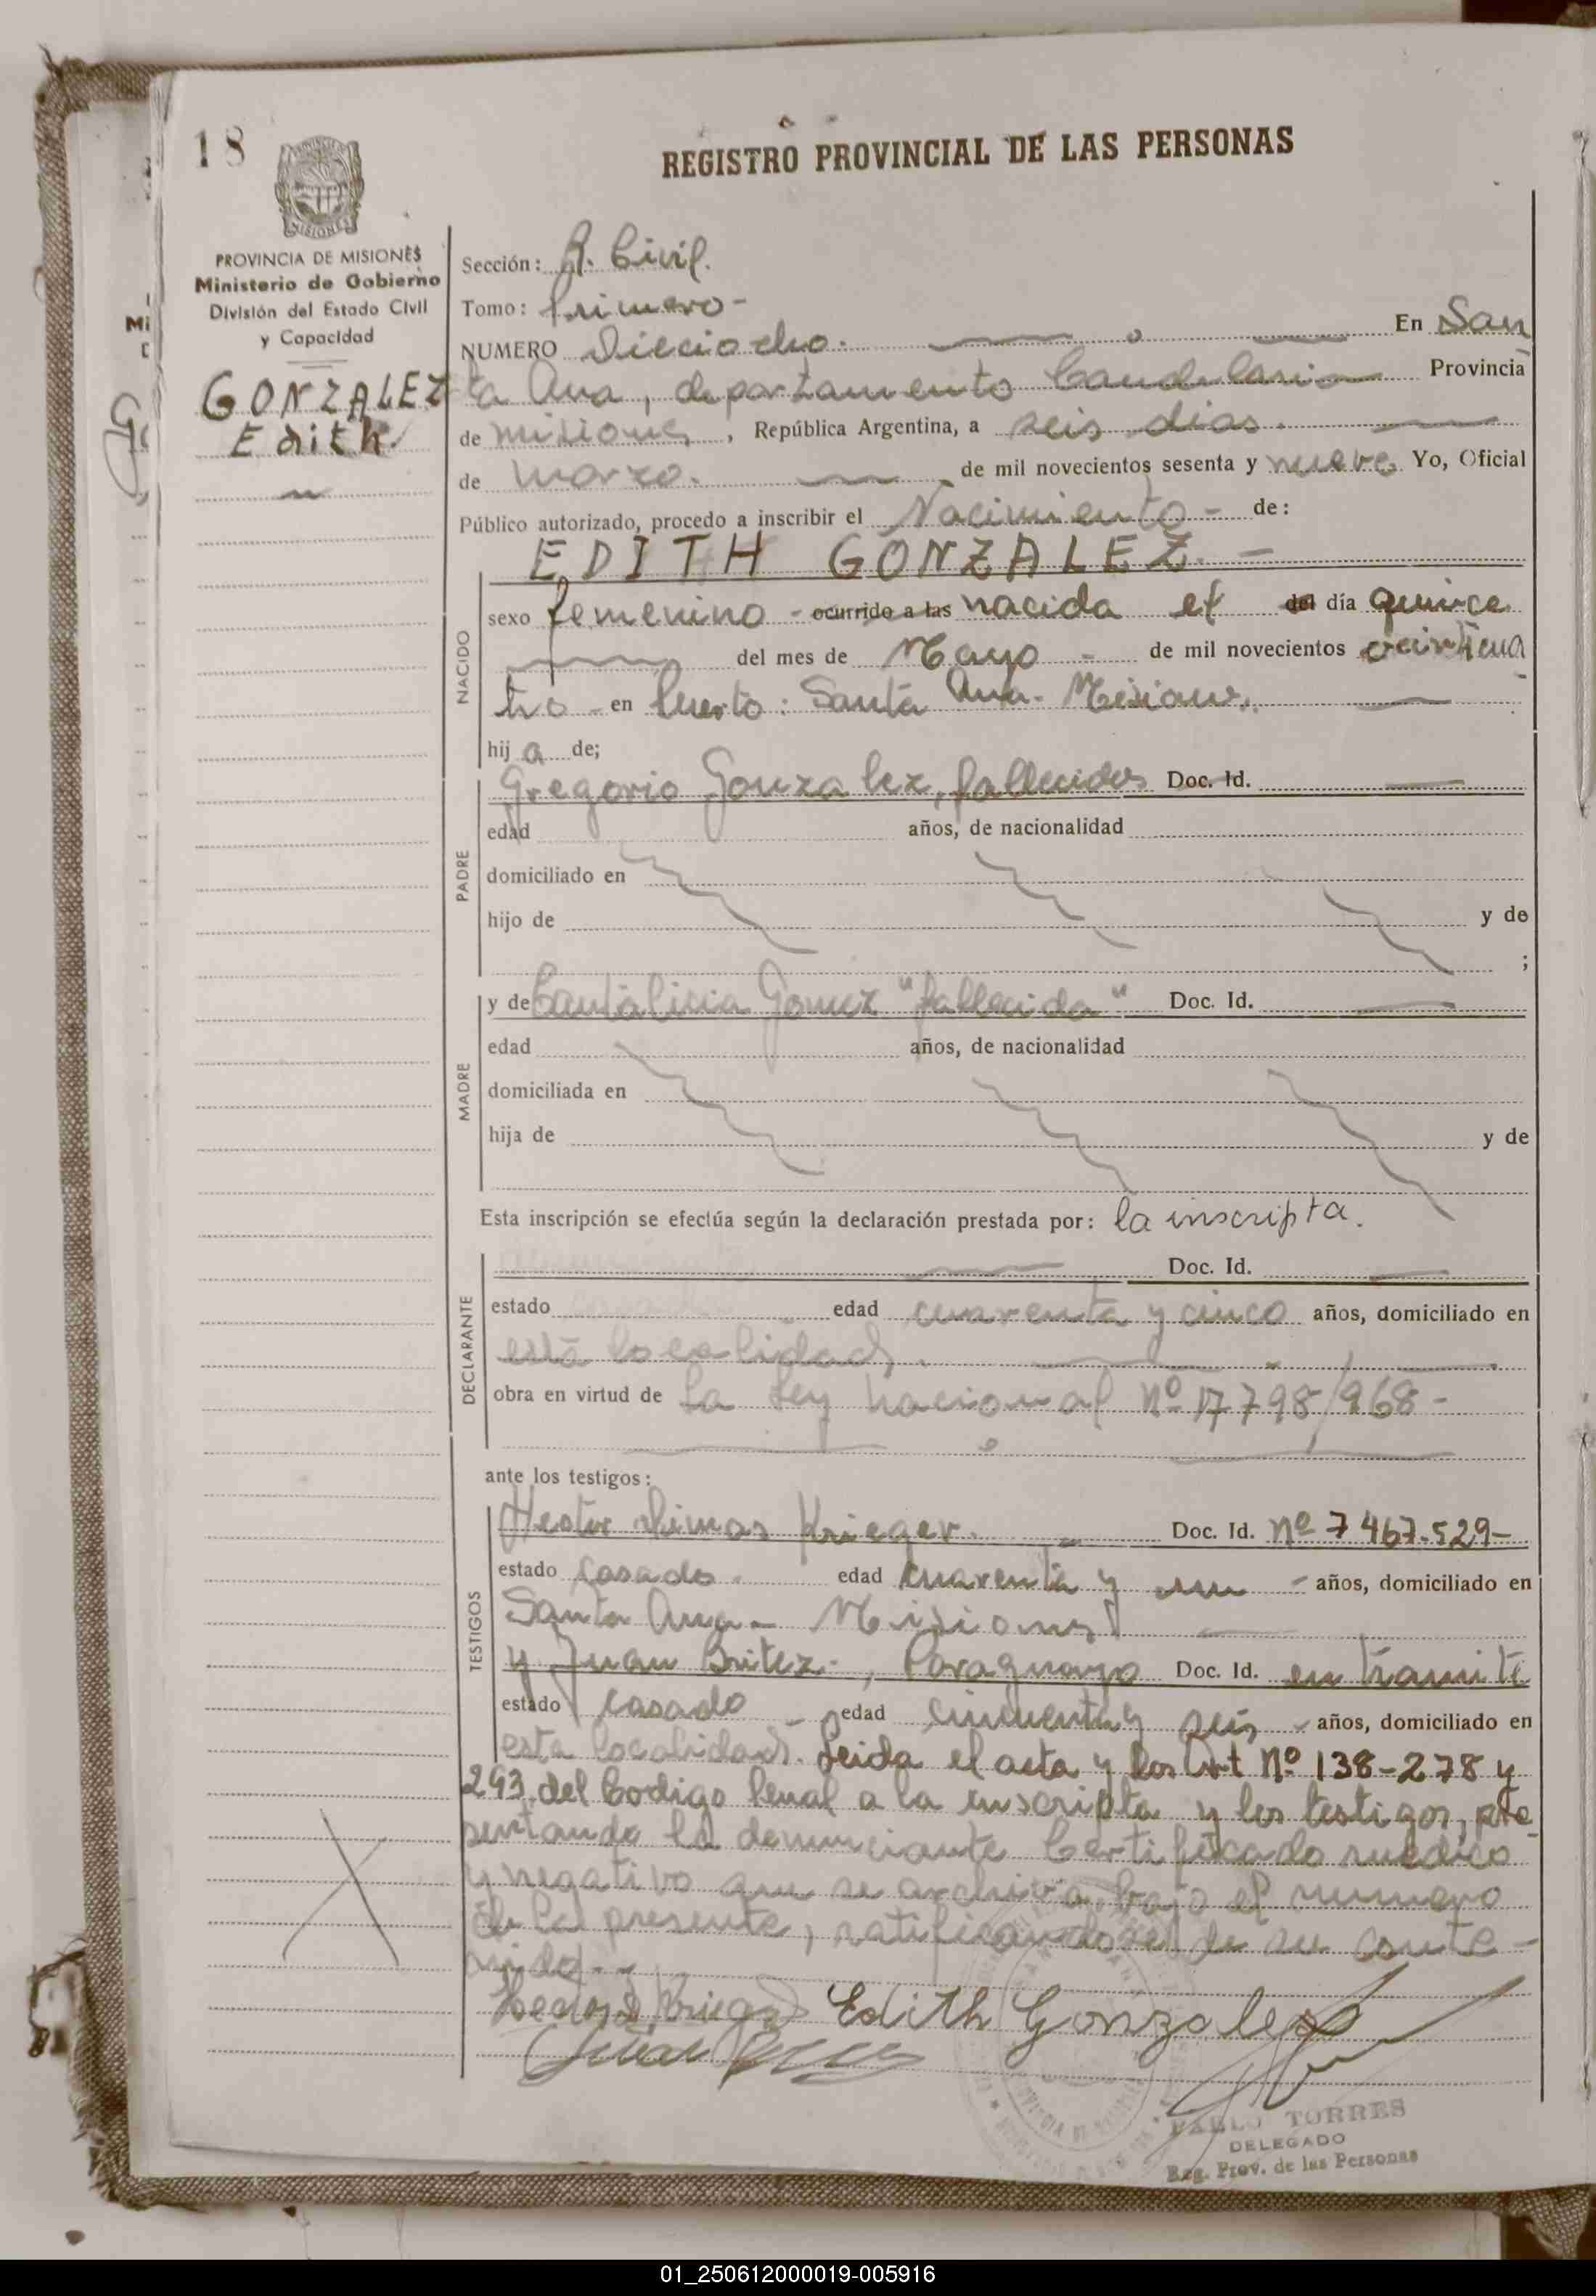 18
REGISTRO PROVINCIAL DE LAS PERSONAS
MISIONES
PROVINCIA DE MISIONES
Ministerio de Gobierno
División del Estado Civil
y Capacidad
GONZALEZ
Edith
Sección: R. Civil.
Tomo: Primero -
NUMERO Dieciocho. En San
ta Ana, departamento Candelaria Provincia
de misiones, República Argentina, a seis dias.
de marzo. de mil novecientos sesenta y nueve Yo, Oficial
Público autorizado, procedo a inscribir el Nacimiento - de:
EDITH GONZALEZ. -
NACIDO
sexo femenino - ocurrido a las nacida el del día quince
del mes de Mayo - de mil novecientos veinticua
tro - en Puerto: Santa Ana - Misiones.
hij a de;
PADRE
Gregorio Gonzalez, fallecidos Doc. Id.
edad años, de nacionalidad
domiciliado en
hijo de y de
;
MADRE
y de Cantalicia Gomez "fallecida" Doc. Id.
edad años, de nacionalidad
domiciliada en
hija de y de
Esta inscripción se efectúa según la declaración prestada por: la inscripta.
DECLARANTE
Doc. Id.
estado edad cuarenta y cinco años, domiciliado en
esta localidad.
obra en virtud de la Ley nacional nº 17798/968 -
ante los testigos:
TESTIGOS
Hector Dimas Krieger. - Doc. Id. nº 7467.529-
estado casado. edad cuarenta y un - años, domiciliado en
Santa Ana - Misiones
y Juan Britez -, Paraguayo Doc. Id. en tramite
estado casado - edad cincuenta y seis - años, domiciliado en
esta localidad. Leida el acta y los Art Nº 138-278 y
293 del Codigo Penal a la inscripta y los testigos, pre
sentando la denunciante Certificado medico
y negativo que se archiva bajo el numero
de la presente, ratificandose de su conte-
nido - -
Edith Gonzalez
PABLO TORRES
DELEGADO
Reg. Prov. de las Personas
01_250612000019-005916